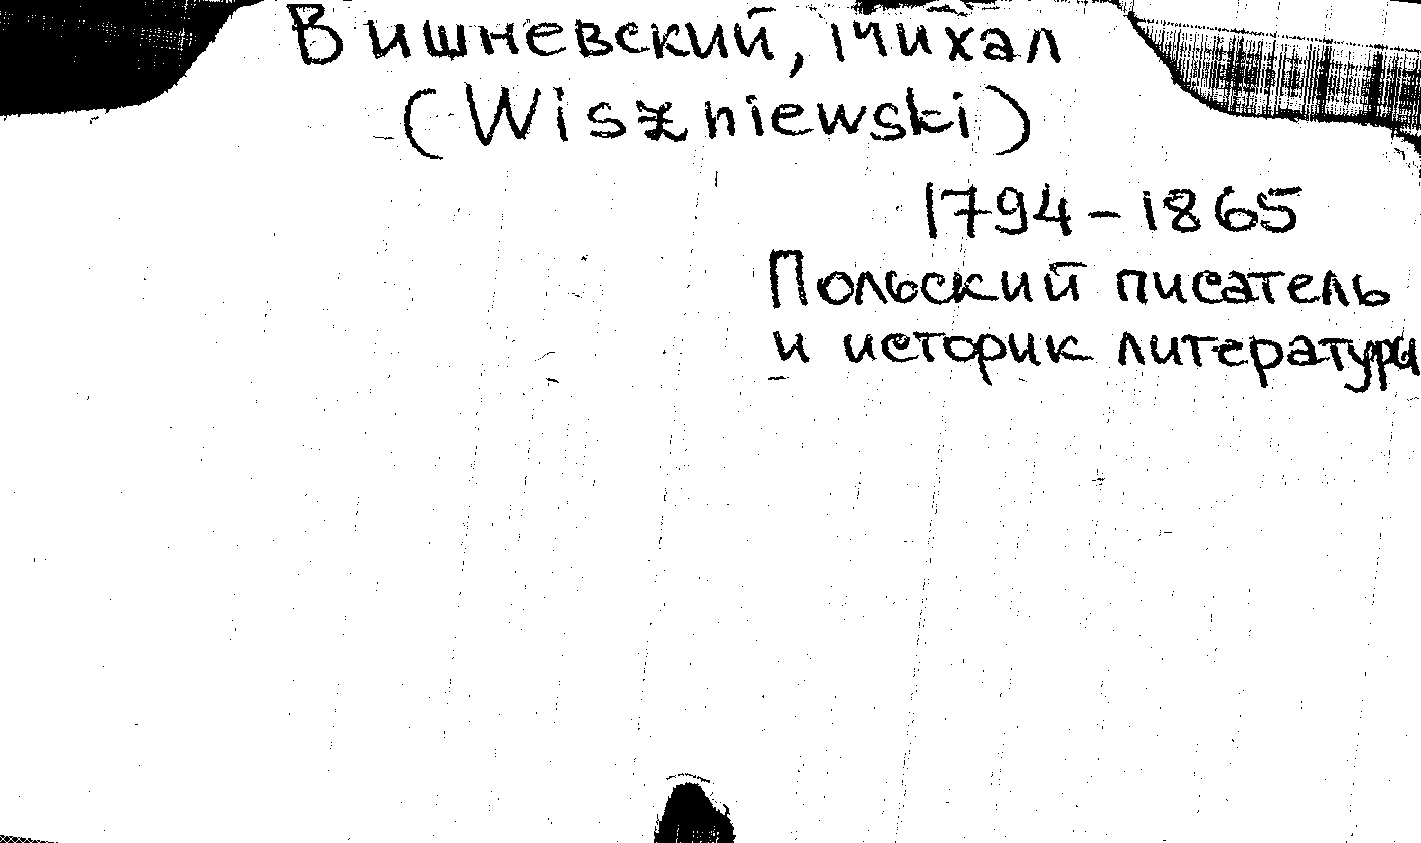 Вишневский, Михал
(Wiszniewski)
1794-1865
Польский писатель
и историк литературы